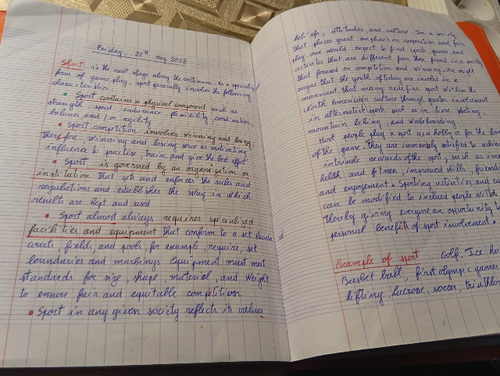 Friday, 20th May 2026
Sport is the next stage along the continuum. As a specialized
form of game play, sport generally involves the following
characteristics.
• Sport contains a physical component such as
strength, speed, endurance, flexibility, coordination,
balance and / or agility
• Sport competition involves winning and losing,
therefore winning and losing serve as motivating
influence to practice, train and give the best effort.
• Sport is governed by an organisation or
institution that sets and enforces the rules and
regulations and establishes the way in which
results are kept and used
• Sport almost always requires specialised
facilities and equipment that conform to a set
courts, fields, and pools for example require set
boundaries and markings Equipment must meet
standards for size, shape material, and weight
to ensure fair and equitable competition
• Sport in any given society reflects its values
beliefs, attitudes and culture In a society
that places great emphasis on competition and fair
play one would expect to find sports games and
activities that are different from those found in a society
that focused on competition and winning. One might
argue that the youth of today are involved in a
movement that may redefine sport within the
North American culture through greater involvement
in alternative sports such as in-line skating,
mountain biking, and wakeboarding
Most people play a sport as a hobby or for the love
of the game, they are immensely satisfied to achieve
intrinsic rewards of the sport, such as
health and fitness, improved skills, friends
and enjoyment. Sporting activities, and
can be modified to include people with
thereby giving everyone an opportunity to
personal benefits of sport involvement.
Example of sport Golf, Ice
Basket ball, first olympic games
lifting, lacrose, soccer,